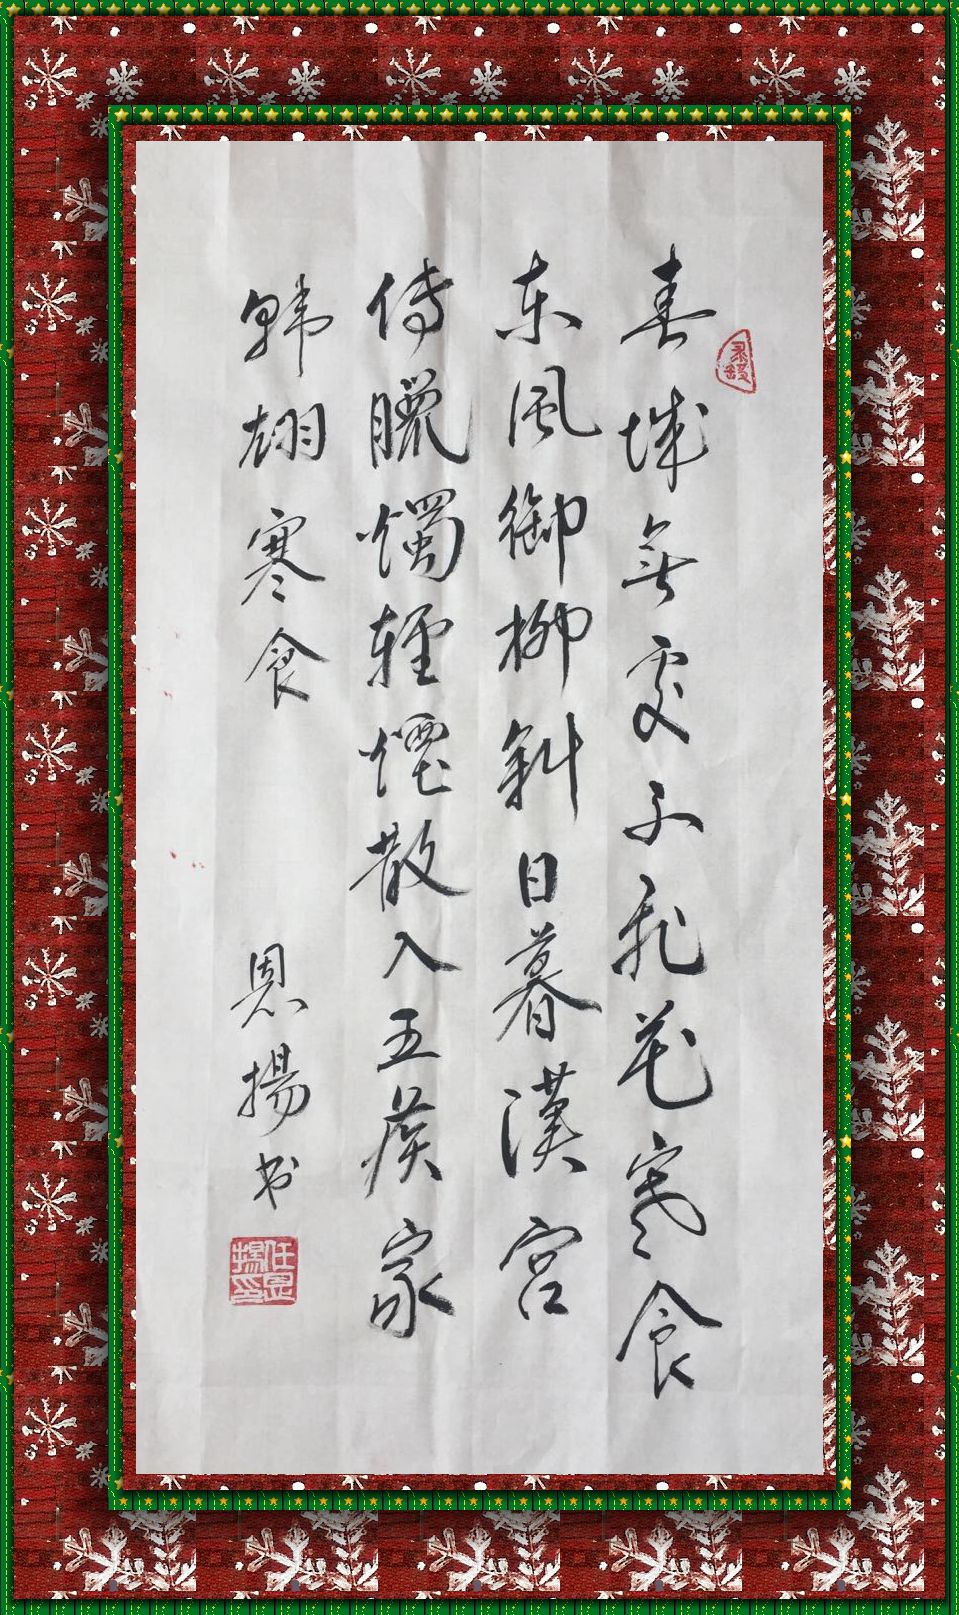 春城無處不飛花寒食
东風御柳斜日暮漢宮
傳臘燭輕煙散入五侯家
韓翃寒食
恩揚书
任恩揚印